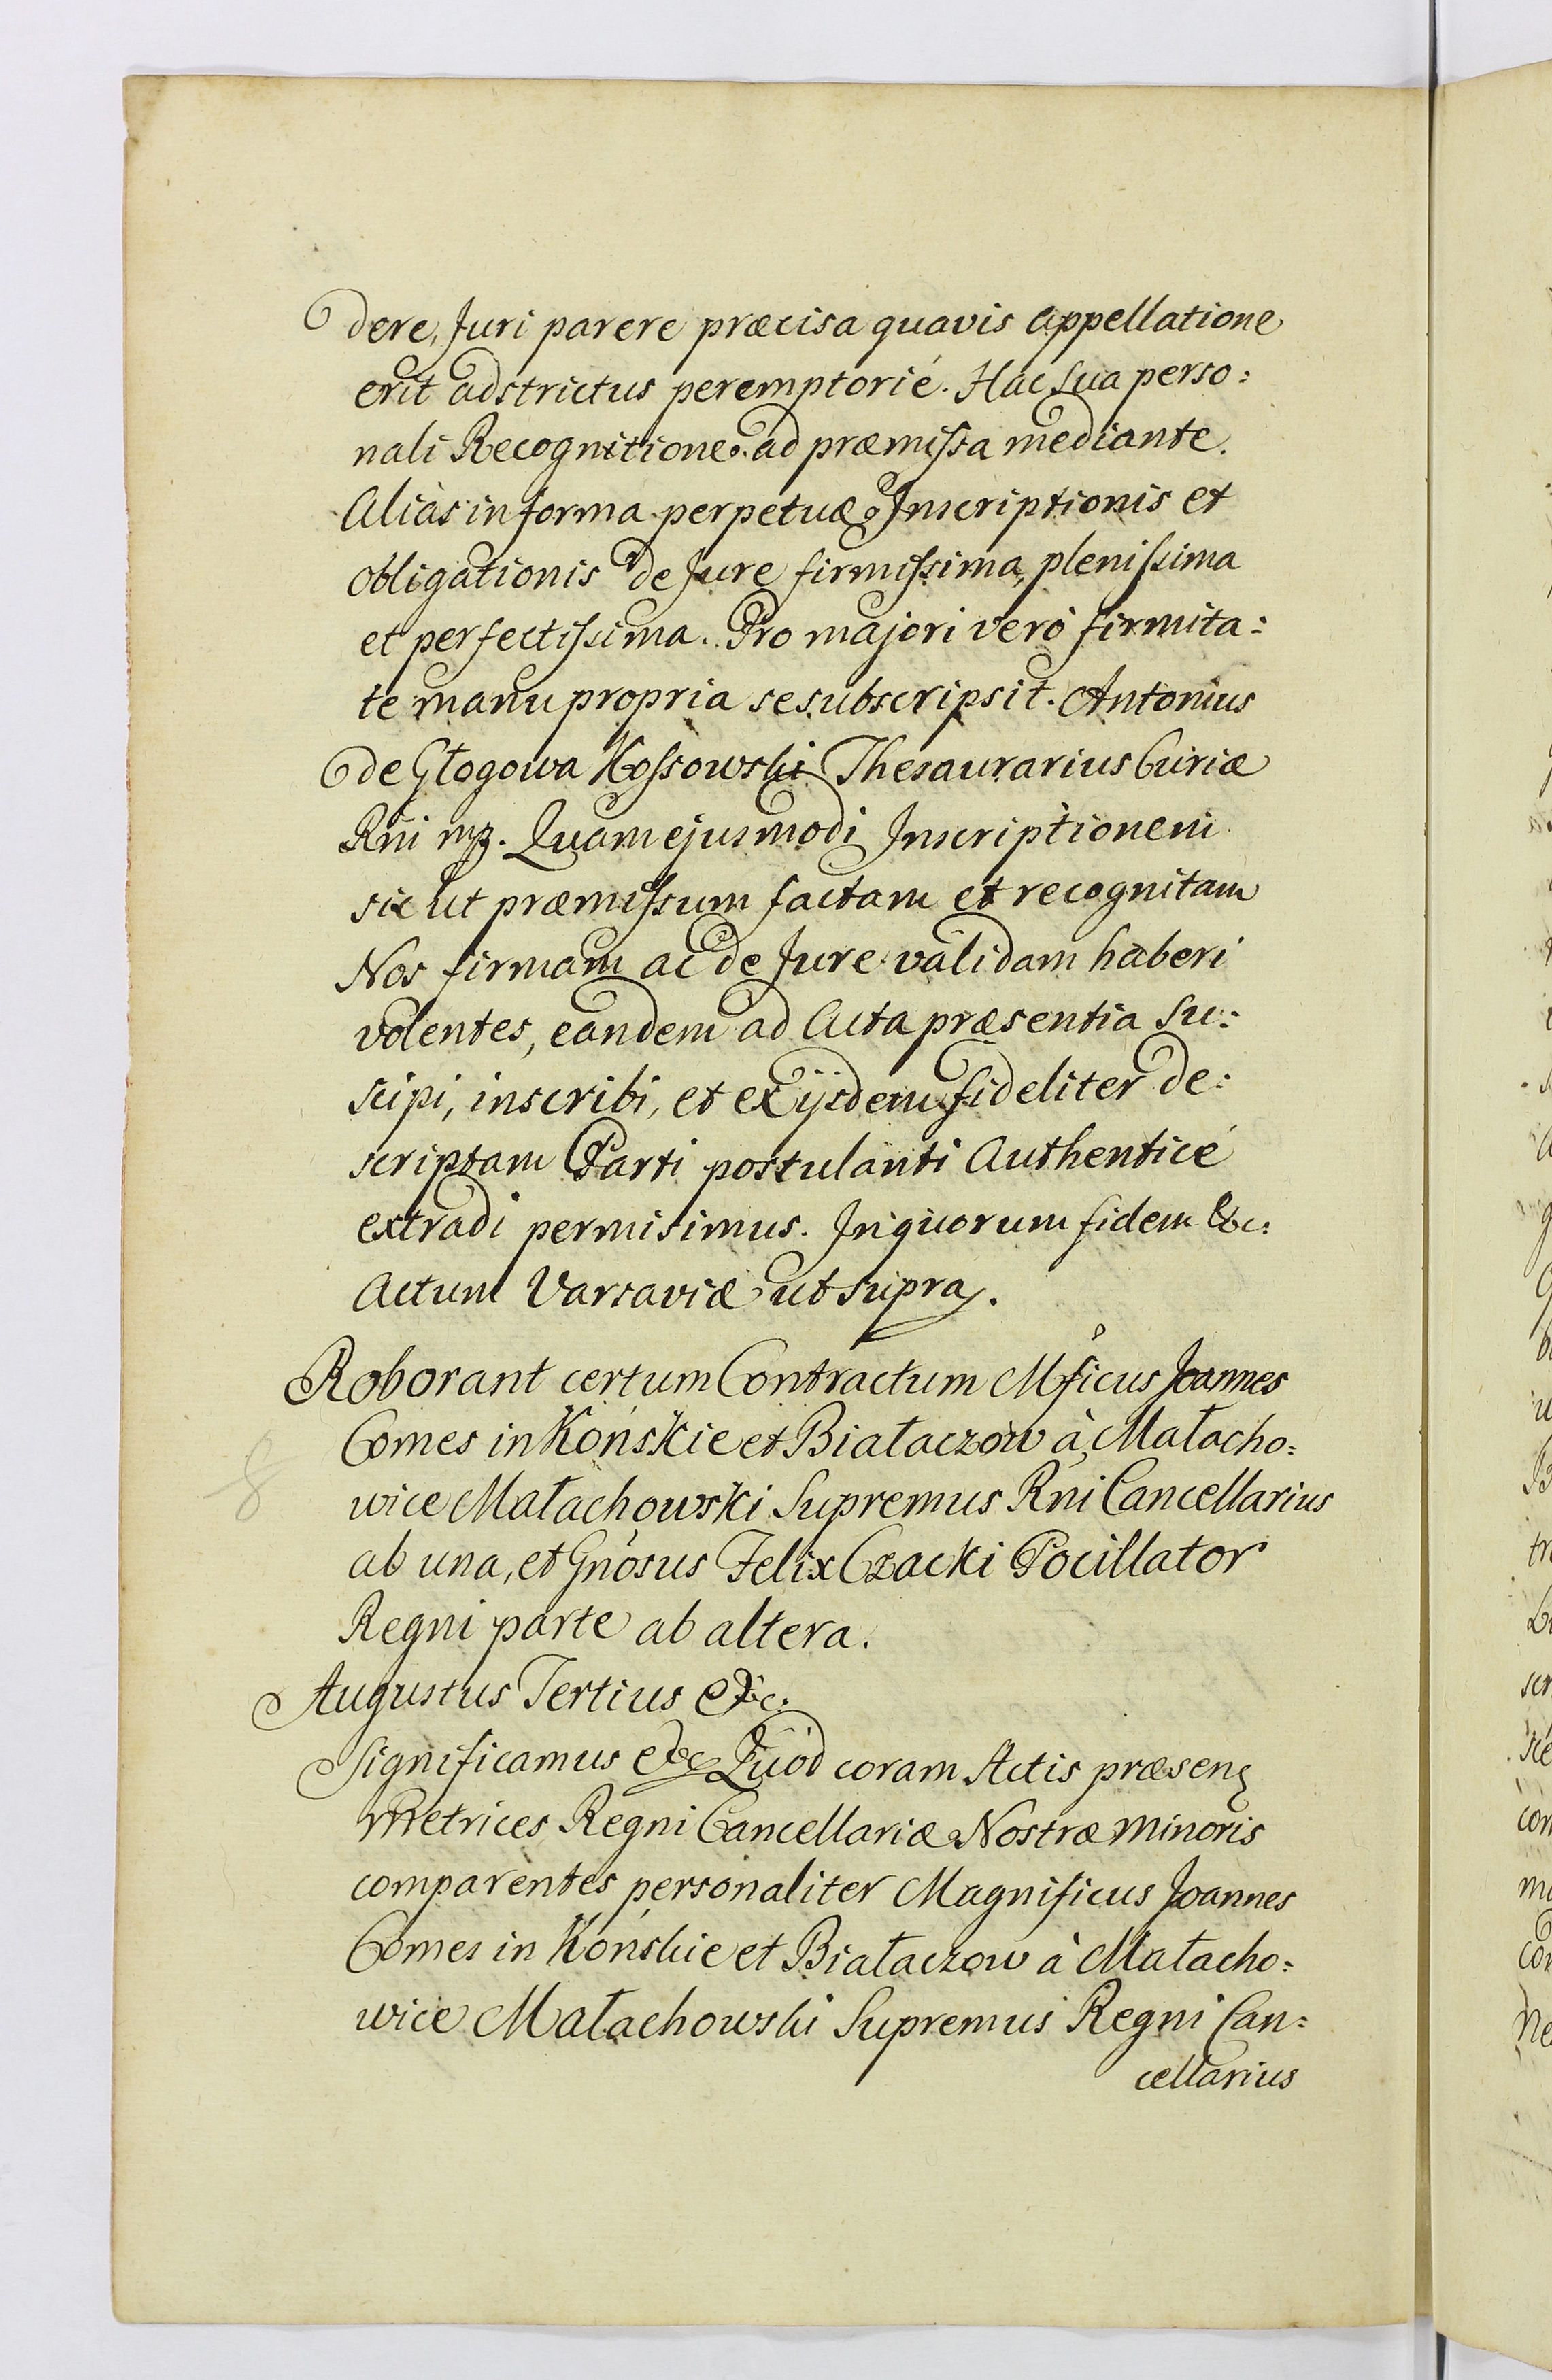 dere, Juri parere præcisa quavis appellatione
erit adstrictus peremptorié. Hac sua perso:
nali Recognitione ad præmissa mediante.
Aliàs in forma perpetuæ Inscriptionis et
obligationis de Jure firmissima, plenissima
et perfectissima. Pro majori verò firmita:
te manu propria se subscripsit. Antonius
de Głogowa Kossowski Thesaurarius Curiæ
Rni mp. Quam ejusmodi Inscriptionem
sic ut præmissum factam et recognitam
Nos firmam ac de Jure validam haberi
volentes, eandem ad Acta præsentia su:
scipi, inscribi, et ex ijsdem fideliter de:
scriptam Parti postulanti Authenticé
extradi permisimus. In quorum fidem &c:
Actum Varsaviæ ut supra.
Roborant certum Contractum Mficus Joannes
Comes in Końskie et Białaczow à Małacho:
wice Małachowski Supremus Rni Cancellarius
8
ab una, et Gnosus Felix Czacki Pocillator
Regni parte ab altera.
Augustus Tertius &c.
Significamus &c Quod coram Actis præsen
Metrices Regni Cancellariæ Nostræ Minoris
comparentes personaliter Magnificus Joannes
Comes in Końskie et Białaczow à Małacho:
wice Małachowski Supremus Regni Can:
cellarius